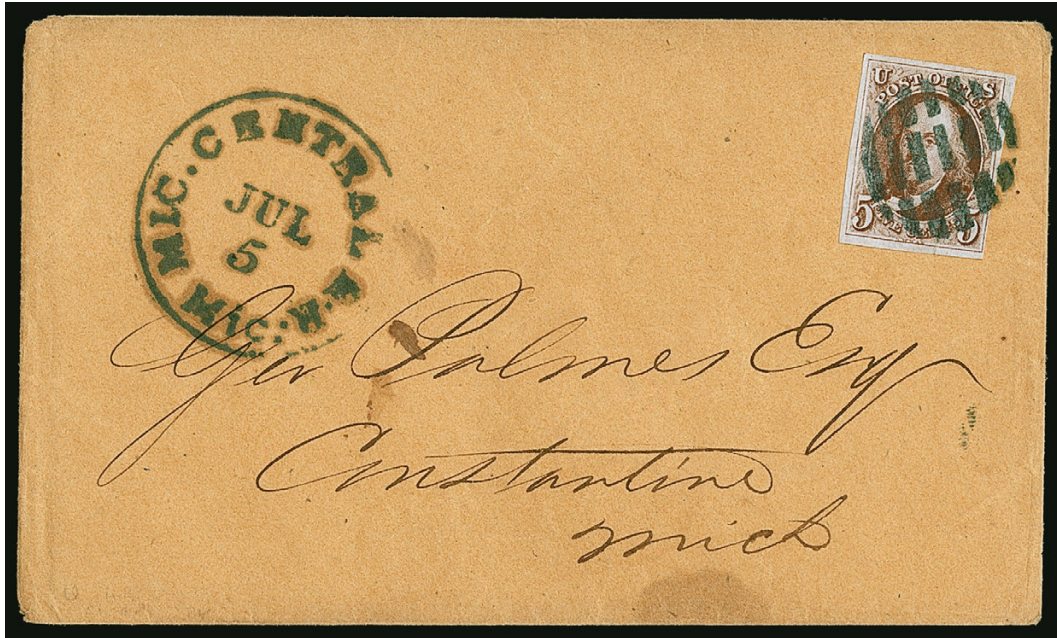 MIC. CENTRAL R.R. MIC.
JUL
5
U S
POST OFFICE
5 5
Geo Palmes Esq
Constantine
Mich